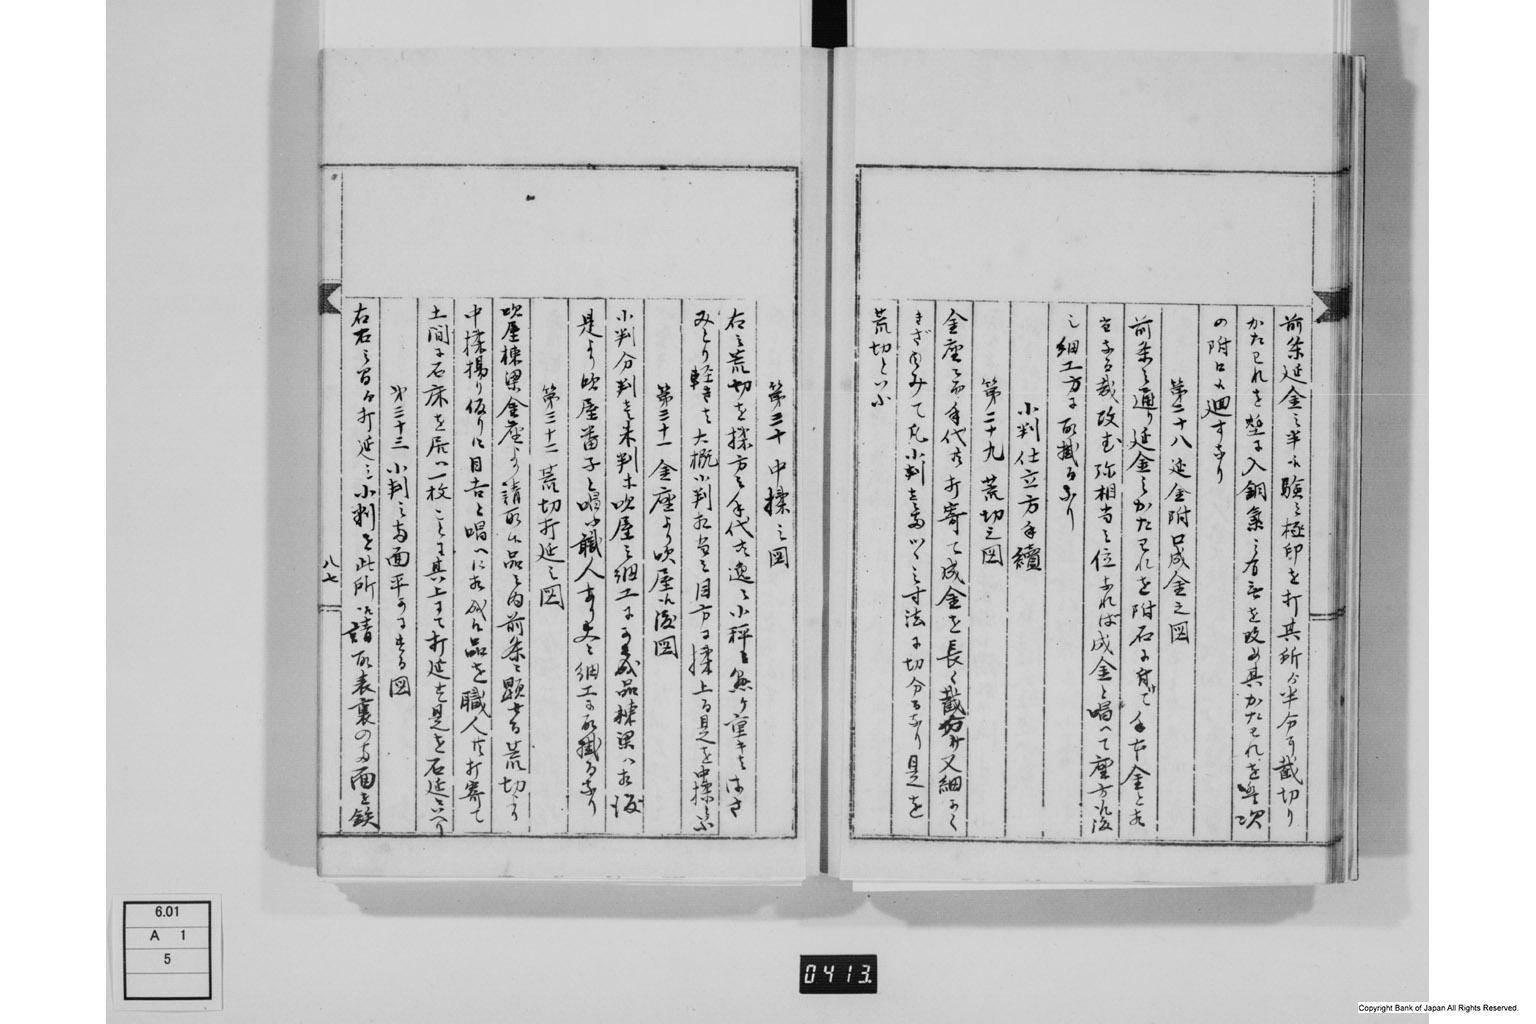 前条延金之半に験之極印を打其所より半分に截切り
かたわれを塾に入銅気之有無を改め其かたわれを次
の附口に廻すなり
第二十八 延金附口成金之図
前条之通り延金之かたわれを附石に附て手本金と
裁改む弥相当之位なれば成金と唱へて座方に渡
し細工方に取掛るなり
小判仕立方手続
第二十九 荒切之図
金座之手代共打寄て成金を長く截分け又細かく
きざみて凡小判壱両ツヽ之寸法に切分るなり是を
荒切といふ
第三十 中揉之図
右之荒切を揉方之手代共逸々小秤に懸け重きはは
みとり軽きは大概小判相当之目方に揉上る是を中揉といふ
第三十一 金座より吹屋に渡図
小判分判を未判木吹屋之細工に品棟梁へ相渡
是より吹屋番子と唱ふ職人あり夫々細工に取掛るなり
第三十二 荒切打延之図
吹屋棟梁金座より請取候品之内前条に顕せる荒切より
中揉揚り仮に目吉と唱へに相成候品を職人共打寄て
土間に石床を居へ一枚ことに其上にて打延を是を石延といへり
第三十三 小判之両面平かにする図
右石之上に打延之小判を此所に請取表裏の両面を鉄
八七
6.01
A 1
5
0413.
Copyright Bank of Japan All Rights Reserved.